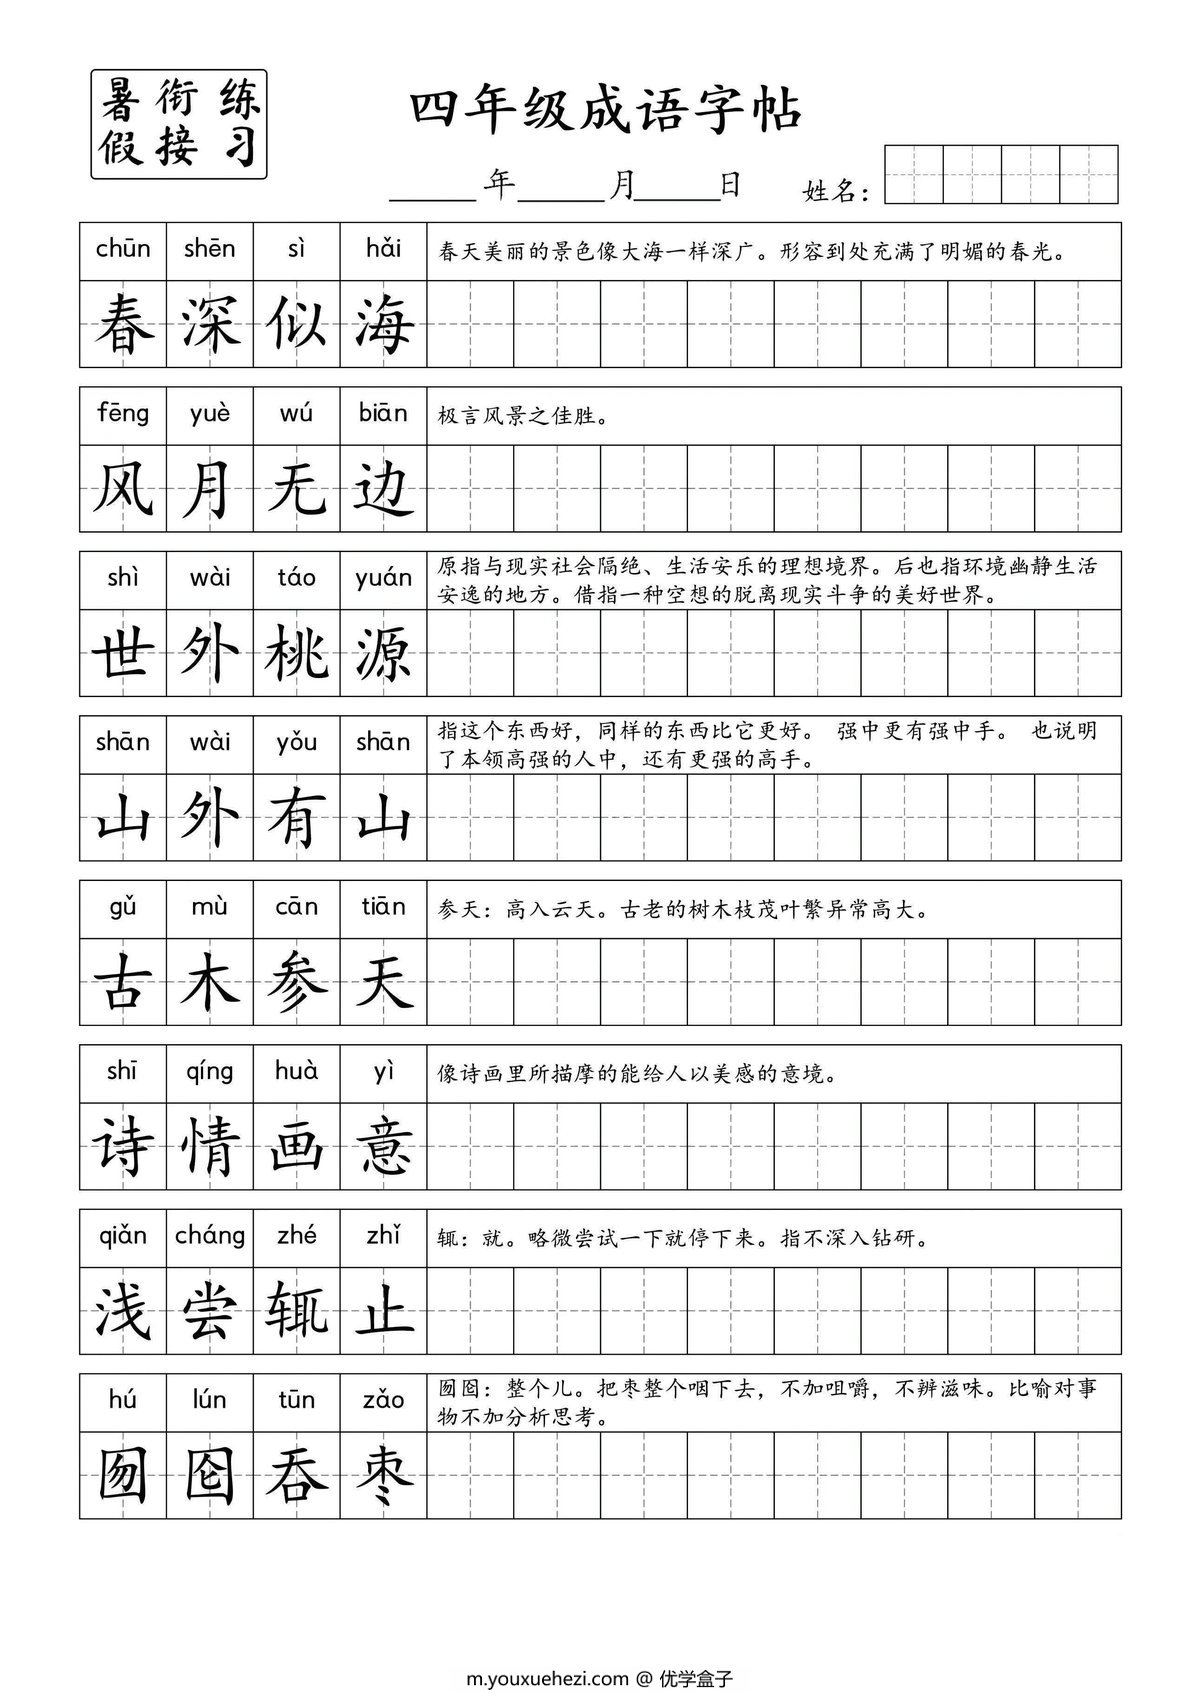 暑衔练
假接习
四年级成语字帖
年 月 日 姓名：
chūn shēn sì hǎi
春天美丽的景色像大海一样深广。形容到处充满了明媚的春光。
春深似海
fēng yuè wú biān
极言风景之佳胜。
风月无边
shì wài táo yuán
原指与现实社会隔绝、生活安乐的理想境界。后也指环境幽静生活
安逸的地方。借指一种空想的脱离现实斗争的美好世界。
世外桃源
shān wài yǒu shān
指这个东西好，同样的东西比它更好。 强中更有强中手。 也说明
了本领高强的人中，还有更强的高手。
山外有山
gǔ mù cān tiān
参天：高入云天。古老的树木枝茂叶繁异常高大。
古木参天
shī qíng huà yì
像诗画里所描摩的能给人以美感的意境。
诗情画意
qiǎn cháng zhé zhǐ
辄：就。略微尝试一下就停下来。指不深入钻研。
浅尝辄止
hú lún tūn zǎo
囫囵：整个儿。把枣整个咽下去，不加咀嚼，不辨滋味。比喻对事
物不加分析思考。
囫囵吞枣
m.youxuehezi.com @ 优学盒子